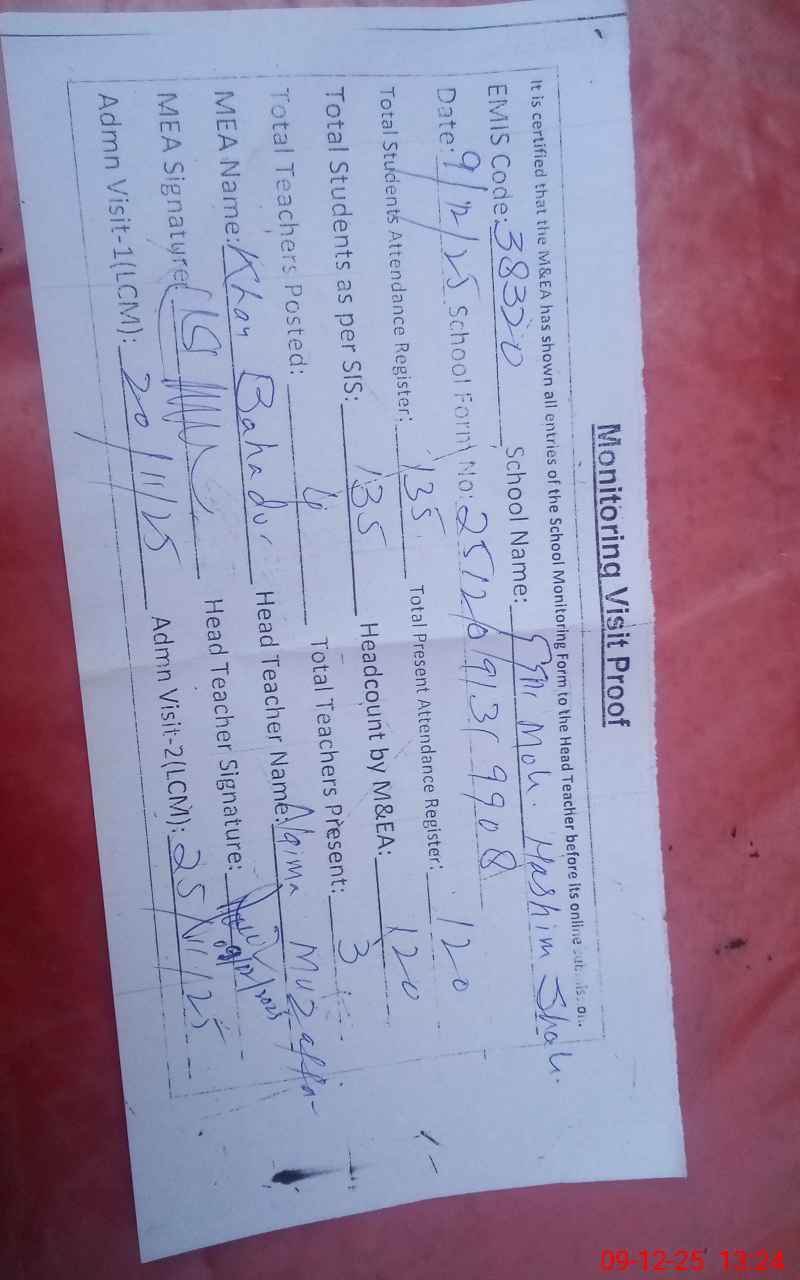 Monitoring Visit Proof
It is certified that the M&EA has shown all entries of the School Monitoring Form to the Head Teacher before its online
EMIS Code: 38320 School Name: Moh. Hashim Shah.
Date: 9/12/25 School Form No: 2512091319908
Total Students Attendance Register: 135 Total Present Attendance Register: 120
Total Students as per SIS: 135 Headcount by M&EA: 120
Total Teachers Posted: 4 Total Teachers Present: 3
MEA Name: Khan Bahadur Head Teacher Name:
MEA Signature: Head Teacher Signature: 09/12/2025
Admn Visit-1(LCM): 20/11/25 Admn Visit-2(LCM): 25/11/25
09-12-25 13:24